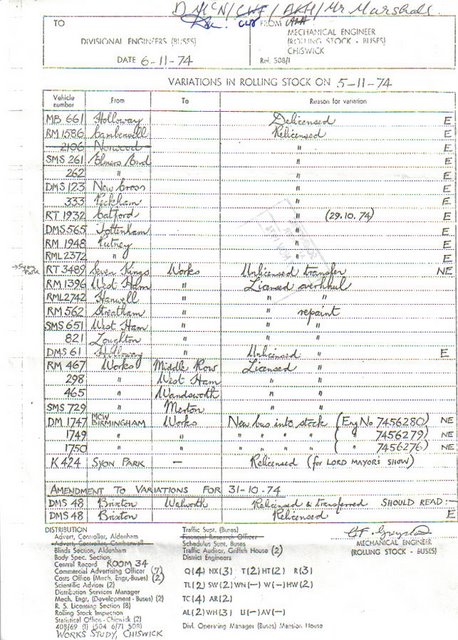 D NLCN/CWF/BKH/Mr Marshall.
TO
DIVISIONAL ENGINEERS (BUSES)
DATE 6-11-74
FROM
MECHANICAL ENGINEER
(ROLLING STOCK - BUSES)
CHISWICK
Ref. 508/1
VARIATIONS IN ROLLING STOCK ON 5-11-74
Vehicle number From To Reason for variation
MB 661 Holloway Delicensed E
RM 1586 Camberwell Relicensed E
2196 Norwood " E
SMS 261 Elmers End " E
262 " " E
DMS 123 New Cross " E
333 Peckham " E
RT 1932 Catford " (29.10.74) E
DMS 565 Tottenham " E
RM 1948 Putney " E
RML 2372 " " E
RT 3489 Seven Kings Works Unlicensed transfer NE
RM 1396 West Ham " Licensed overhaul
RML 2742 Hanwell " " "
RM 562 Streatham " " repaint
SMS 651 West Ham " " "
821 Loughton " " "
DMS 61 Holloway " Unlicensed " E
RM 467 Works Middle Row Licensed "
298 " West Ham " "
465 " Wandsworth " "
SMS 729 " Merton " "
DM 1747 MCW BIRMINGHAM Works New bus into stock (Eng No 7456280) NE
1749 " " " " " " ( " 7456279) NE
1750 " " " " " " ( " 7456276) NE
K 424 SYON PARK — Relicensed (for LORD MAYORS SHOW)
AMENDMENT TO VARIATIONS FOR 31-10-74
DMS 48 Brixton Walworth Relicensed & transferred SHOULD READ:-
DMS 48 Brixton Relicensed E
DISTRIBUTION
Advert. Controller, Aldenham
Advert. Controller, Camberwell
Blinds Section, Aldenham
Body Spec. Section
Central Record ROOM 34
Commercial Advertising Officer (7)
Costs Office (Mech. Engr. Buses) (2)
Scientific Adviser (2)
Distribution Services Manager
Mech. Engr. (Development - Buses) (2)
R. S. Licensing Section (8)
Rolling Stock Inspection
Statistical Office - Chiswick (2)
WORKS STUDY, CHISWICK
Traffic Supt. (Buses)
Principal Research Officer
Schedules Supt. Buses
Traffic Auditor, Griffith House (2)
District Engineers
Q(4) NX(3) T(2) HT(2) R(3)
TL(2) SW(2) WN(-) W(-) HW(2)
TC(4) AR(2)
AL(2) WH(3) U(-) AV(-)
Divl. Operating Manager (Buses) Mansion House
MECHANICAL ENGINEER
(ROLLING STOCK - BUSES)